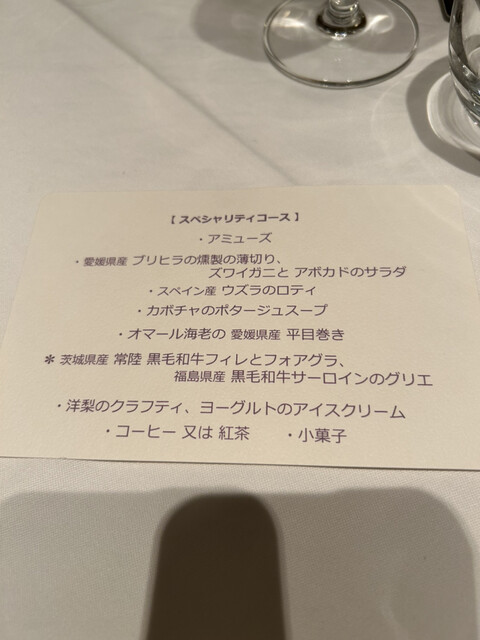 【 スペシャリティコース 】
・アミューズ
・愛媛県産 ブリヒラの燻製の薄切り、
ズワイガニと アボカドのサラダ
・スペイン産 ウズラのロティ
・カボチャのポタージュスープ
・オマール海老の 愛媛県産 平目巻き
＊茨城県産 常陸 黒毛和牛フィレとフォアグラ、
福島県産 黒毛和牛サーロインのグリエ
・洋梨のクラフティ、ヨーグルトのアイスクリーム
・コーヒー 又は 紅茶　　・小菓子